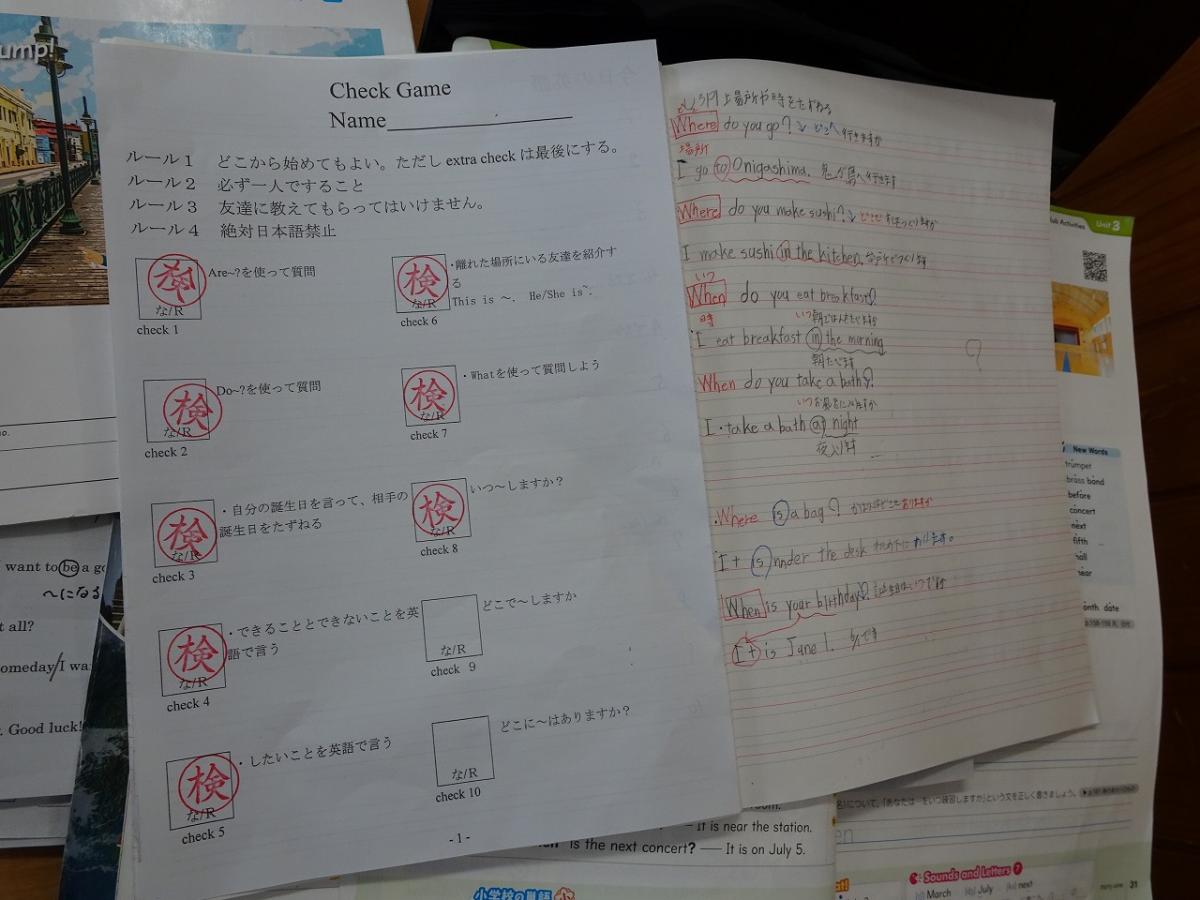 ump!
want to be a go
〜になる
t all?
omeday/I wa
. Good luck!
Check Game
Name
ルール１ どこから始めてもよい。ただし extra check は最後にする。
ルール２ 必ず一人ですること
ルール３ 友達に教えてもらってはいけません。
ルール４ 絶対日本語禁止
検
な/R
check 1
Are~?を使って質問
検
な/R
check 2
Do~?を使って質問
検
な/R
check 3
・自分の誕生日を言って、相手の
誕生日をたずねる
検
な/R
check 4
・できることとできないことを英
語で言う
検
な/R
check 5
・したいことを英語で言う
検
な/R
check 6
・離れた場所にいる友達を紹介す
る
This is 〜. He/She is~.
検
な/R
check 7
・Whatを使って質問しよう
検
な/R
check 8
いつ〜しますか？
な/R
check 9
どこで〜しますか
な/R
check 10
どこに〜はありますか？
- 1 -
場所や時をたずねる
Where do you go? どこへ行きますか
場所
I go to Onigashima. 鬼が島へ行きます
Where do you make sushi?
I make sushi in the kitchen.
いつ
When do you eat breakfast?
時
I eat breakfast in the morning
朝たべます
When do you take a bath?
I take a bath at night
Where is a bag?
It is under the desk
When is your birthday?
It is June 1.
Unit 3
New Words
trumpet
brass band
before
concert
next
fifth
hall
near
month date
について,「あなたは…をいつ練習しますか」という文を正しく書きましょう。
room.
It is near the station.
is the next concert? — It is on July 5.
小学校の単語
Sounds and Letters 7
March July next
31